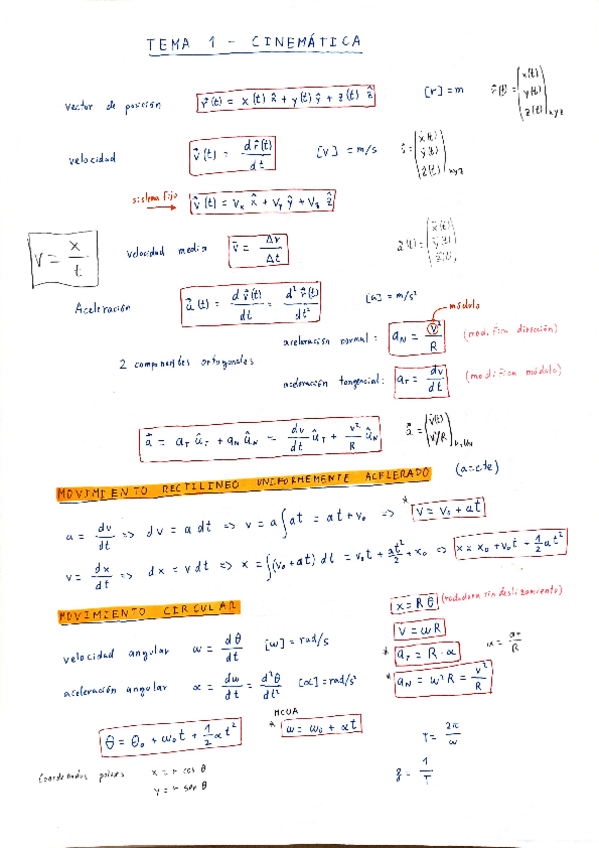 TEMA 1 - CINEMÁTICA
vector de posición r⃗(t) = x(t) x̂ + y(t) ŷ + z(t) ẑ [r] = m r⃗(t) = (x(t) y(t) z(t))xyz
velocidad v⃗(t) = dr⃗(t)/dt [v] = m/s v⃗ = (ẋ(t) ẏ(t) ż(t))xyz
sistema fijo v⃗(t) = Vx x̂ + Vy ŷ + Vz ẑ
V = x/t
velocidad media v̄ = Δr/Δt
Aceleración a⃗(t) = dv⃗(t)/dt = d² r⃗(t)/dt² [a] = m/s²
módulo
aceleración normal: aN = v²/R (modifica dirección)
2 componentes ortogonales
aceleración tangencial: aT = dv/dt (modifica módulo)
a⃗ = aT ûT + aN ûN = dv/dt ûT + v²/R ûN
MOVIMIENTO RECTILINEO UNIFORMEMENTE ACELERADO (a=cte)
a = dv/dt => dv = a dt => v = a∫dt = at + v₀ => * V = V₀ + at
v = dx/dt => dx = v dt => x = ∫(v₀ + at) dt = v₀t + at²/2 + x₀ => x = x₀ + v₀t + 1/2 at²
MOVIMIENTO CIRCULAR
x = R θ (rodadura sin deslizamiento)
V = ωR
velocidad angular ω = dθ/dt [ω] = rad/s
* aT = R · α α = aT/R
aceleración angular α = dω/dt = d²θ/dt² [α] = rad/s²
* aN = ω²R = v²/R
MCUA
θ = θ₀ + ω₀t + 1/2 αt² * ω = ω₀ + αt
T = 2π/ω
Coordenadas polares x = r cos θ
y = r sen θ
f = 1/T